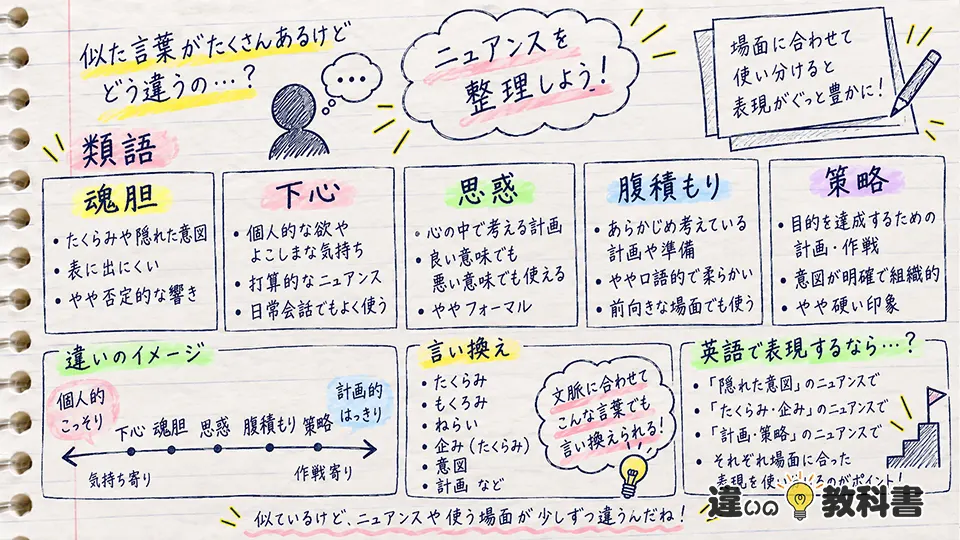 似た言葉がたくさんあるけど
どう違うの…?
ニュアンスを
整理しよう!
場面に合わせて
使い分けると
表現がぐっと豊かに!
類語
魂胆
・たくらみや隠れた意図
・表に出にくい
・やや否定的な響き
下心
・個人的な欲や
よこしまな気持ち
・打算的なニュアンス
・日常会話でもよく使う
思惑
・心の中で考える計画
・良い意味でも
悪い意味でも使える
・ややフォーマル
腹積もり
・あらかじめ考えている
計画や準備
・やや口語的で柔らかい
・前向きな場面でも使う
策略
・目的を達成するための
計画・作戦
・意図が明確で組織的
・やや硬い印象
違いのイメージ
個人的
こっそり
計画的
はっきり
下心 魂胆 思惑 腹積もり 策略
気持ち寄り
作戦寄り
言い換え
・たくらみ
・もくろみ
・ねらい
・企み(たくらみ)
・意図
・計画 など
文脈に合わせて
こんな言葉でも
言い換えられる!
英語で表現するなら…?
・「隠れた意図」のニュアンスで
・「たくらみ・企み」のニュアンスで
・「計画・策略」のニュアンスで
・それぞれ場面に合った
表現を使い のがポイント!
似ているけど、ニュアンスや使う場面が少しずつ違うんだね!
違いの教科書